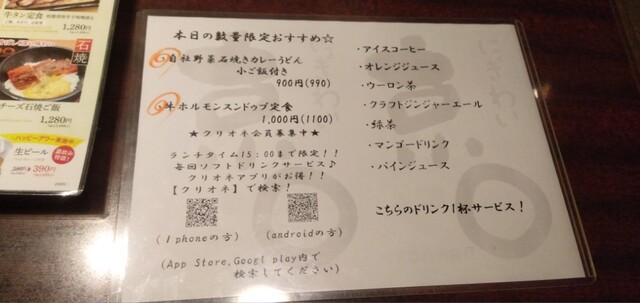 牛タン定食
1,280円
石焼
チーズ石焼ご飯
1,280円
ハッピーアワー実施中
生ビール
390円
本日の数量限定おすすめ☆
自社野菜石焼きカレーうどん
小ご飯付き
900円(990)
牛ホルモンスンドゥブ定食
1,000円(1100)
★クリオネ会員募集中★
ランチタイム15:00まで限定!!
毎回ソフトドリンクサービス♪
クリオネアプリがお得!!
【クリオネ】で検索!
(iphoneの方)
(androidの方)
(App Store,Googl play内で
検索してください)
・アイスコーヒー
・オレンジジュース
・ウーロン茶
・クラフトジンジャーエール
・緑茶
・マンゴードリンク
・パインジュース
こちらのドリンク1杯サービス!